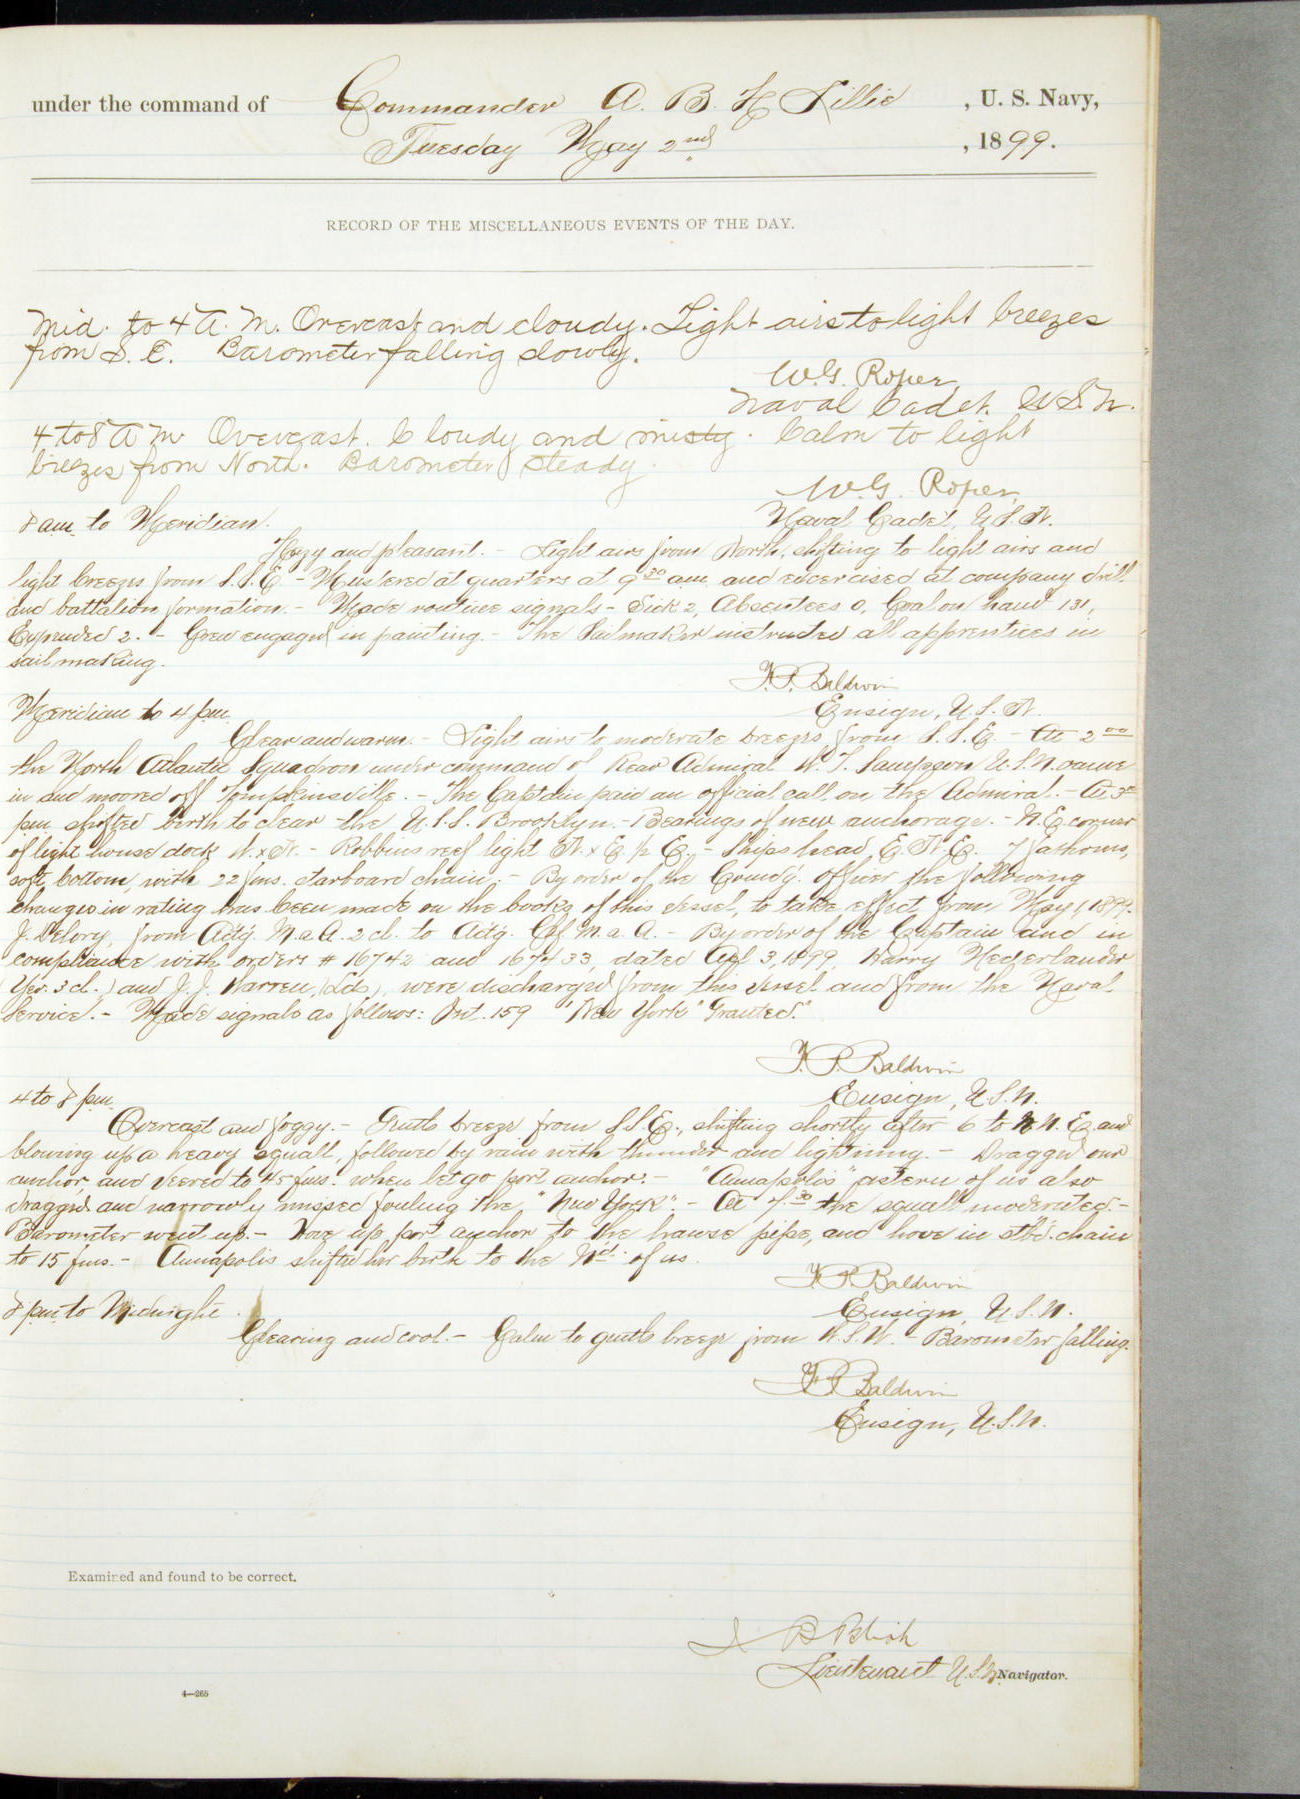 under the command of Commander A. B. H. Lillie , U. S. Navy,
Tuesday May 2nd , 1899.
RECORD OF THE MISCELLANEOUS EVENTS OF THE DAY.
Mid. to 4 A. M. Overcast and cloudy. Light airs to light breezes
from S. E. Barometer falling slowly.
W. G. Roper
Naval Cadet. U.S.N.
4 to 8 A M Overcast. Cloudy and misty. Calm to light
breezes from North. Barometer steady.
W. G. Roper,
8 am. to Meridian.
Naval Cadet, U.S.N.
Hazy and pleasant. - Light airs from North, shifting to light airs and
light breezes from S.S.E. - Mustered at quarters at 9 30 am. and exercised at company drill
and battalion formation. - Made routine signals - Sick 2, Absentees 0, Coal on hand 131,
Expended 2. - Crew engaged in painting. - The Sailmaker instructed all apprentices in
sail making.
F. P. Baldwin
Meridian to 4 pm.
Ensign, U.S.N.
Clear and warm. - Light airs to moderate breezes from S.S.E. - At 2 00
the North Atlantic Squadron under command of Rear Admiral W. T. Sampson U.S.N. came
in and moored off Tompkinsville. - The Captain paid an official call on the Admiral. - At 3
pm shifted berth to clear the U.S.S. Brooklyn. - Bearings of new anchorage. - N.E. corner
of light house dock W.xN. - Robbins reef light N.xE.½E. - Ships head E.N.E. 7 fathoms,
soft bottom, with 22 fms. starboard chain. - By order of the Comdg. officer the following
changes in rating has been made on the books of this vessel, to take effect from May 1, 1899.
J. Delory, from Actg. M.a.A. 2 cl. to Actg. Chf M.a.A. - By order of the Captain and in
compliance with orders # 16742 and 167433, dated Apl 3, 1899, Harry Nederlander
(Yeo. 3 cl.) and J. J. Warren, (Lds), were discharged from this vessel and from the Naval
Service. - Made signals as follows: Int. 159 "New York" Granted."
F. P. Baldwin
4 to 8 pm.
Ensign, U.S.N.
Overcast and foggy. - Gentle breeze from S.S.E., shifting shortly after 6 to N.N.E. and
blowing up a heavy squall, followed by rain with thunder and lightning. - Dragged our
anchor, and veered to 45 fms. when let go port anchor. - "Annapolis" astern of us also
dragged and narrowly missed fouling the "New York". - At 7. 30 the squall moderated. -
Barometer went up. - Hove up port anchor to the hawse pipe, and hove in stbd. chain
to 15 fms. - Annapolis shifted her berth to the Nd. of us.
F. P. Baldwin
8 pm. to Midnight.
Ensign, U.S.N.
Clearing and cool. - Calm to gentle breeze from W.S.W. - Barometer falling.
F P Baldwin
Ensign, U.S.N.
Examined and found to be correct.
J B Blish
Lieutenant U.S.N. Navigator.
4—265